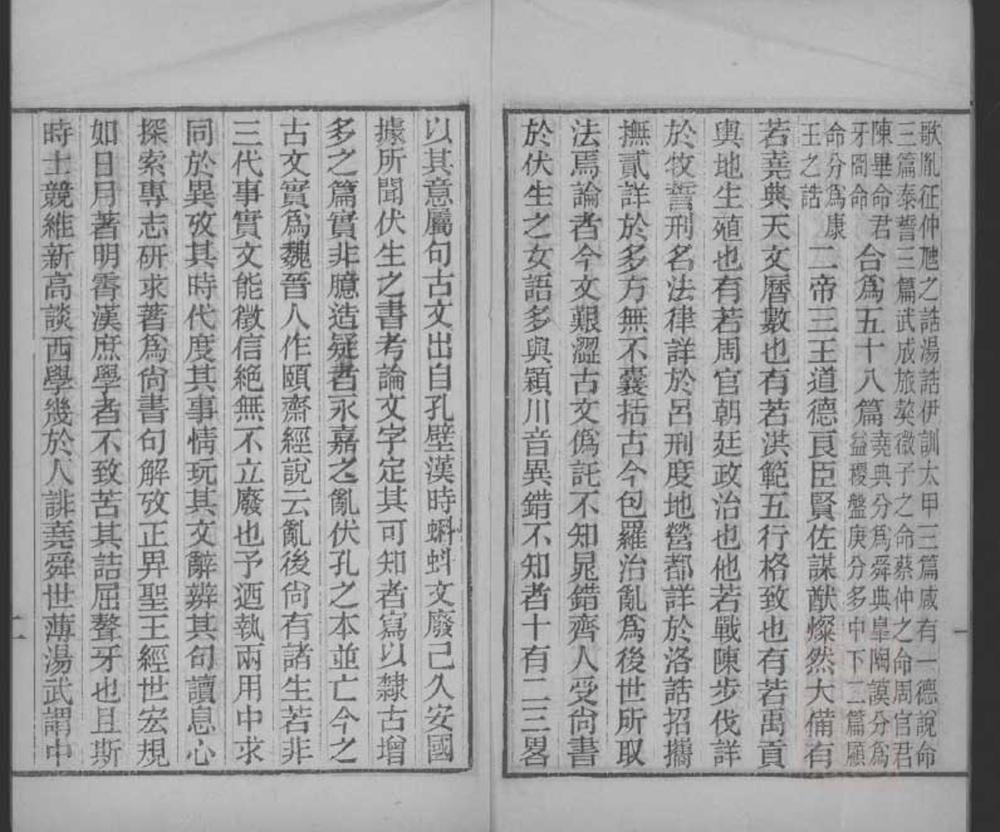 歌胤征仲虺之誥湯誥伊訓太甲三篇咸有一德說命
三篇泰誓三篇武成旅獒微子之命蔡仲之命周官君
陳畢命君
牙冏命
合爲五十八篇
堯典分爲舜典皐陶謨分爲
益稷盤庚分多中下二篇顧
命分爲康
王之誥
二帝三王道德良臣賢佐謀猷燦然大備有
若堯典天文曆數也有若洪範五行格致也有若禹貢
輿地生殖也有若周官朝廷政治也他若戰陳步伐詳
於牧誓刑名法律詳於呂刑度地營都詳於洛誥招攜
撫貳詳於多方無不囊括古今包羅治亂爲後世所取
法焉論者今文艱澀古文僞託不知晁錯齊人受尙書
於伏生之女語多與潁川音異錯不知者十有二三畧
以其意屬句古文出自孔壁漢時蝌蚪文廢已久安國
據所聞伏生之書考論文字定其可知者寫以隸古增
多之篇實非臆造疑者永嘉之亂伏孔之本並亡今之
古文實爲魏晉人作頤齋經說云亂後尙有諸生若非
三代事實文能徵信絕無不立廢也予迺執兩用中求
同於異攷其時代度其事情玩其文辭辨其句讀息心
探索專志研求著爲尙書句解攷正昇聖王經世宏規
如日月著明霄漢庶學者不致苦其詰屈聱牙也且斯
時士競維新高談西學幾於人誹堯舜世薄湯武謂中
一
二